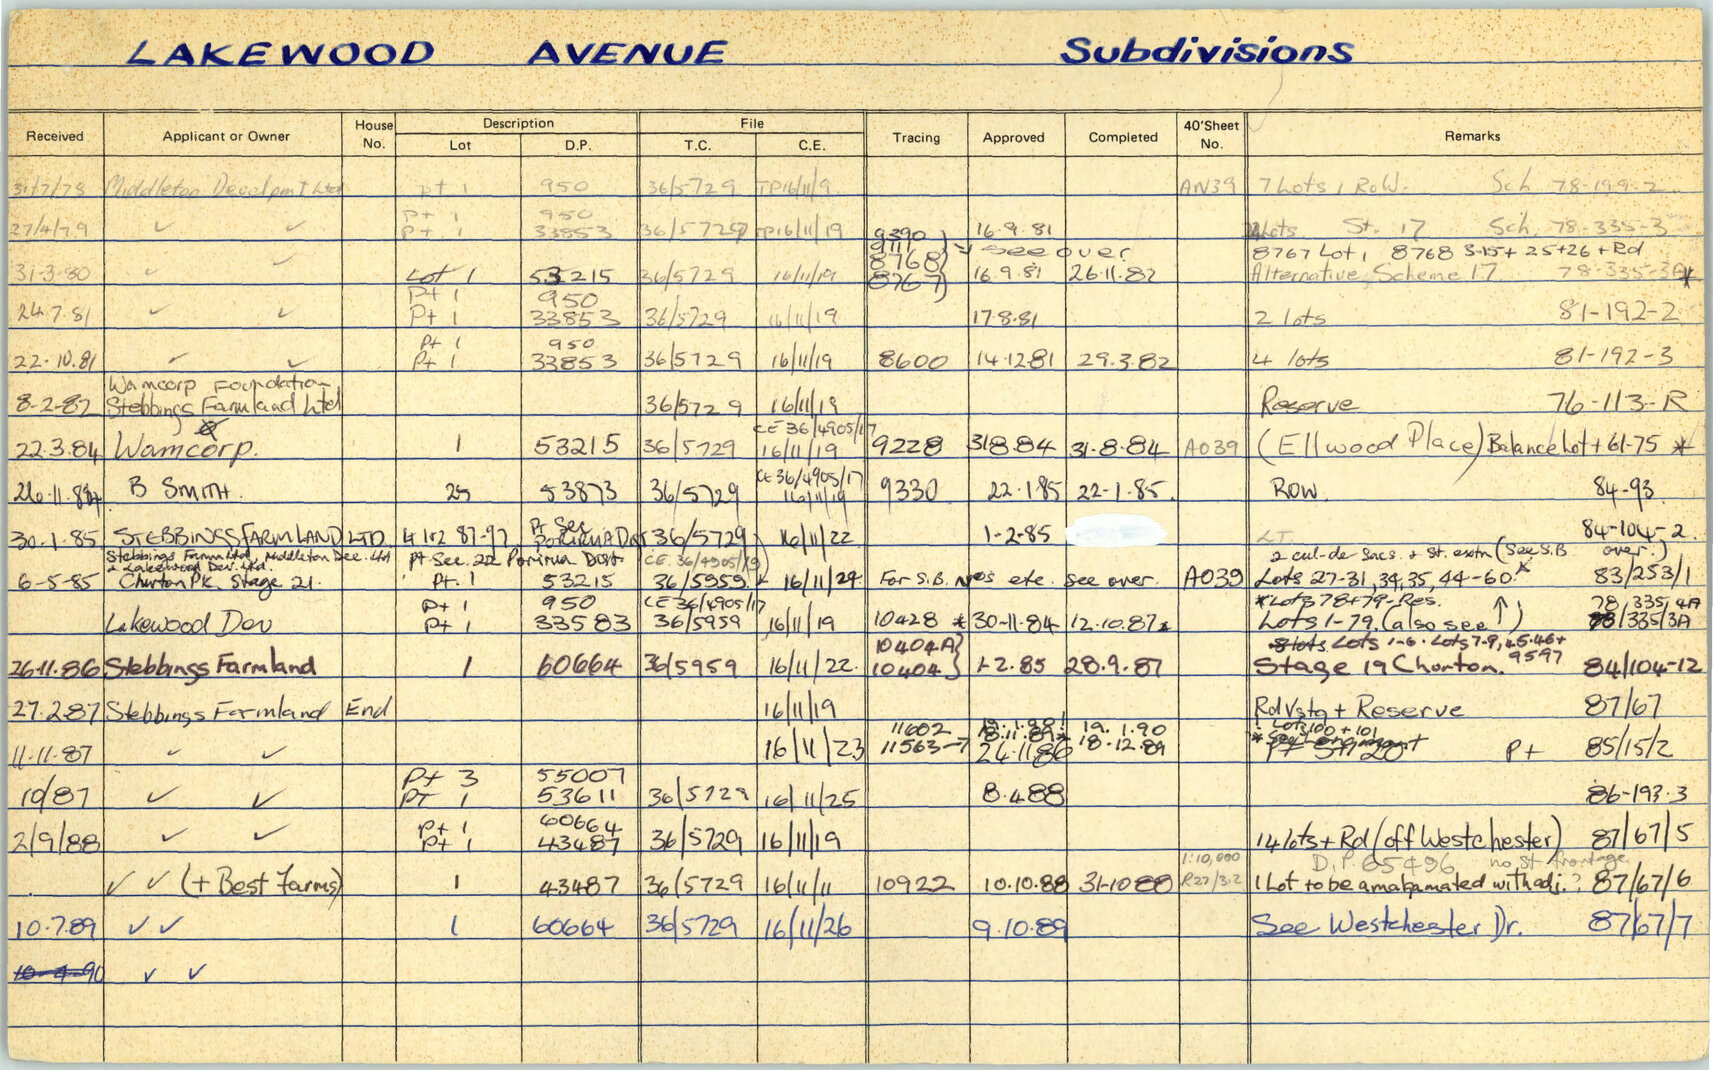 LAKEWOOD AVENUE Subdivisions
Received Applicant or Owner House No. Description Lot D.P. File T.C. C.E. Tracing Approved Completed 40'Sheet No. Remarks
31/7/78 Middleton Develpmt Ltd pt 1 950 36/5729 TP16/11/9 AN39 7 Lots 1 RoW. Sch 78-199-2
Pt 1 950
27/4/79 ✓ ✓ Pt 1 33853 36/5729 TP16/11/19 9390 16.9.81 Lots St. 17 Sch. 78-335-3
9111 see over 8767 Lot 1 8768 3-15+ 25+26 + Rd
31-3-80 ✓ ✓ Lot 1 53215 36/5729 16/11/19 8768 8767 16.9.81 26.11.82 Alternative Scheme 17. 78-335-3A*
Pt 1 950
24.7.81 ✓ ✓ Pt 1 33853 36/5729 16/11/19 17.8.81 2 lots 81-192-2
Pt 1 950
22.10.81 ✓ ✓ Pt 1 33853 36/5729 16/11/19 8600 14.12.81 29.3.82 4 lots 81-192-3
Wamcorp Foundation
8-2-82 Stebbings Farmland Ltd 36/5729 16/11/19 Reserve 76-113-R
CE 36/4905/17
22.3.84 Wamcorp. 1 53215 36/5729 16/11/19 9228 31.8.84 31.8.84 A039 (Ellwood Place) Balance Lot + 61-75 *
CE 36/4905/17
26.11.84 B SMITH. 25 53873 36/5729 16/11/19 9330 22.1.85 22-1-85. ROW. 84-93
Pt Sec
30.1.85 STEBBINGS FARMLAND LTD 4 1+2 87-97 PORIRUA Dist 36/5729 16/11/22 1-2-85 L.T. 84-104-2
Stebbings Farm Ltd, Middleton Dev. Ltd pt Sec. 22 Porirua Dist CE.36/4905/19 2 cul-de-sacs. + St. extn (See S.B over.)
+ Lakewood Dev. Ltd.
6-5-85 Churton Pk. Stage 21. Pt. 1 53215 36/5959 16/11/24 For S.B. No's etc. see over. A039 Lots 27-31, 34, 35, 44-60.* 83/253/1
Pt 1 950 CE 36/4905/17 *Lots 78+79-Res. 78,335,4A
Lakewood Dev Pt 1 33583 36/5959 16/11/19 10428 * 30-11-84 12.10.87* Lots 1-79, (also see ↑) 78/335/3A
10404A 8 lots Lots 1-6. Lots 7-9, 45.46+
26.11.86 Stebbings Farmland 1 60664 36/5959 16/11/22 10404 1-2.85 28.9.87 Stage 19 Chorton. 9597 84/104-12
27.2.87 Stebbings Farmland End 16/11/19 Rd Vstg + Reserve 87/67
11602 19.1.90 ! Lots 100 + 101
11-11-87 ✓ ✓ 16/11/23 11563-7 18.11.89* 24.11.86 18.12.89 Pt 85/15/2
Pt 3 55007
10/87 ✓ ✓ PT 1 53611 36/5729 16/11/25 8.4.88 86-193-3
Pt 1 60664
2/9/88 ✓ ✓ Pt 1 43487 36/5729 16/11/19 14 lots + Rd (off Westchester) 87/67/5
1:10,000 D.P. 65496 no St frontage
✓ ✓ (+ Best Farms) 1 43487 36/5729 16/11/11 10922 10.10.88 31-10-88 R27/3.2 1 Lot to be amalgamated with adj.? 87/67/6
10.7.89 ✓ ✓ 1 60664 36/5729 16/11/26 9.10.89 See Westchester Dr. 87/67/7
10-4-90 ✓ ✓